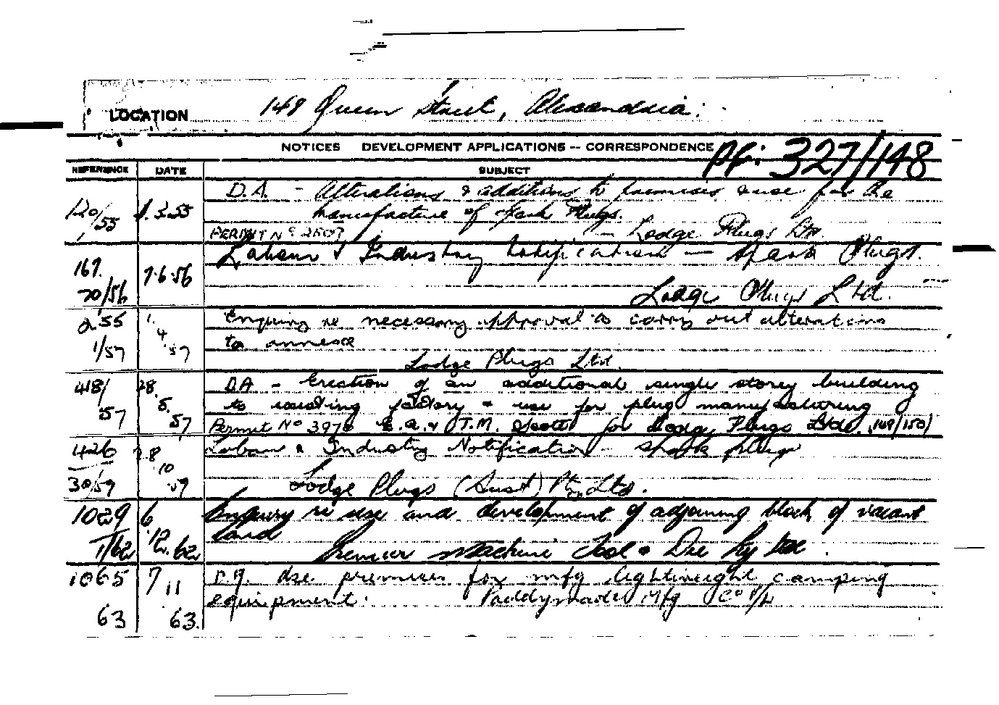 LOCATION 148 Queen Street, Alexandria.
NOTICES DEVELOPMENT APPLICATIONS -- CORRESPONDENCE PF: 327/148
REFERENCE DATE SUBJECT
D.A. - Alterations & additions to premises & use for the
120/55 1.3.55 manufacture of Spark Plugs.
PERMIT No 2507 - Lodge Plugs Ltd.
167. 7.6.56 Labour & Industry Notification - Spark Plugs.
20/56 Lodge Plugs Ltd.
255 1. Enquiry re necessary approval to carry out alterations
1/57 4. 57 to annexe
Lodge Plugs Ltd.
418/ 28. DA - Erection of an additional single storey building
57 5. 57 to existing factory & use for plug manufacturing
Permit No 3976 E.A. & T.M. Scott for Lodge Plugs Ltd. (148/150)
426 28 Labour & Industry Notification - spark plugs
30/59 10 59 Lodge Plugs (Aust) Pty Ltd.
1029 6 Enquiry re use and development of adjoining block of vacant
1/62 12. 62 land Premier Machine Tool & Die Pty Ltd.
1065 7 11 D.A. Use premises for mfg lightweight camping
63 63. equipment. Paddymade Mfg Co P/L